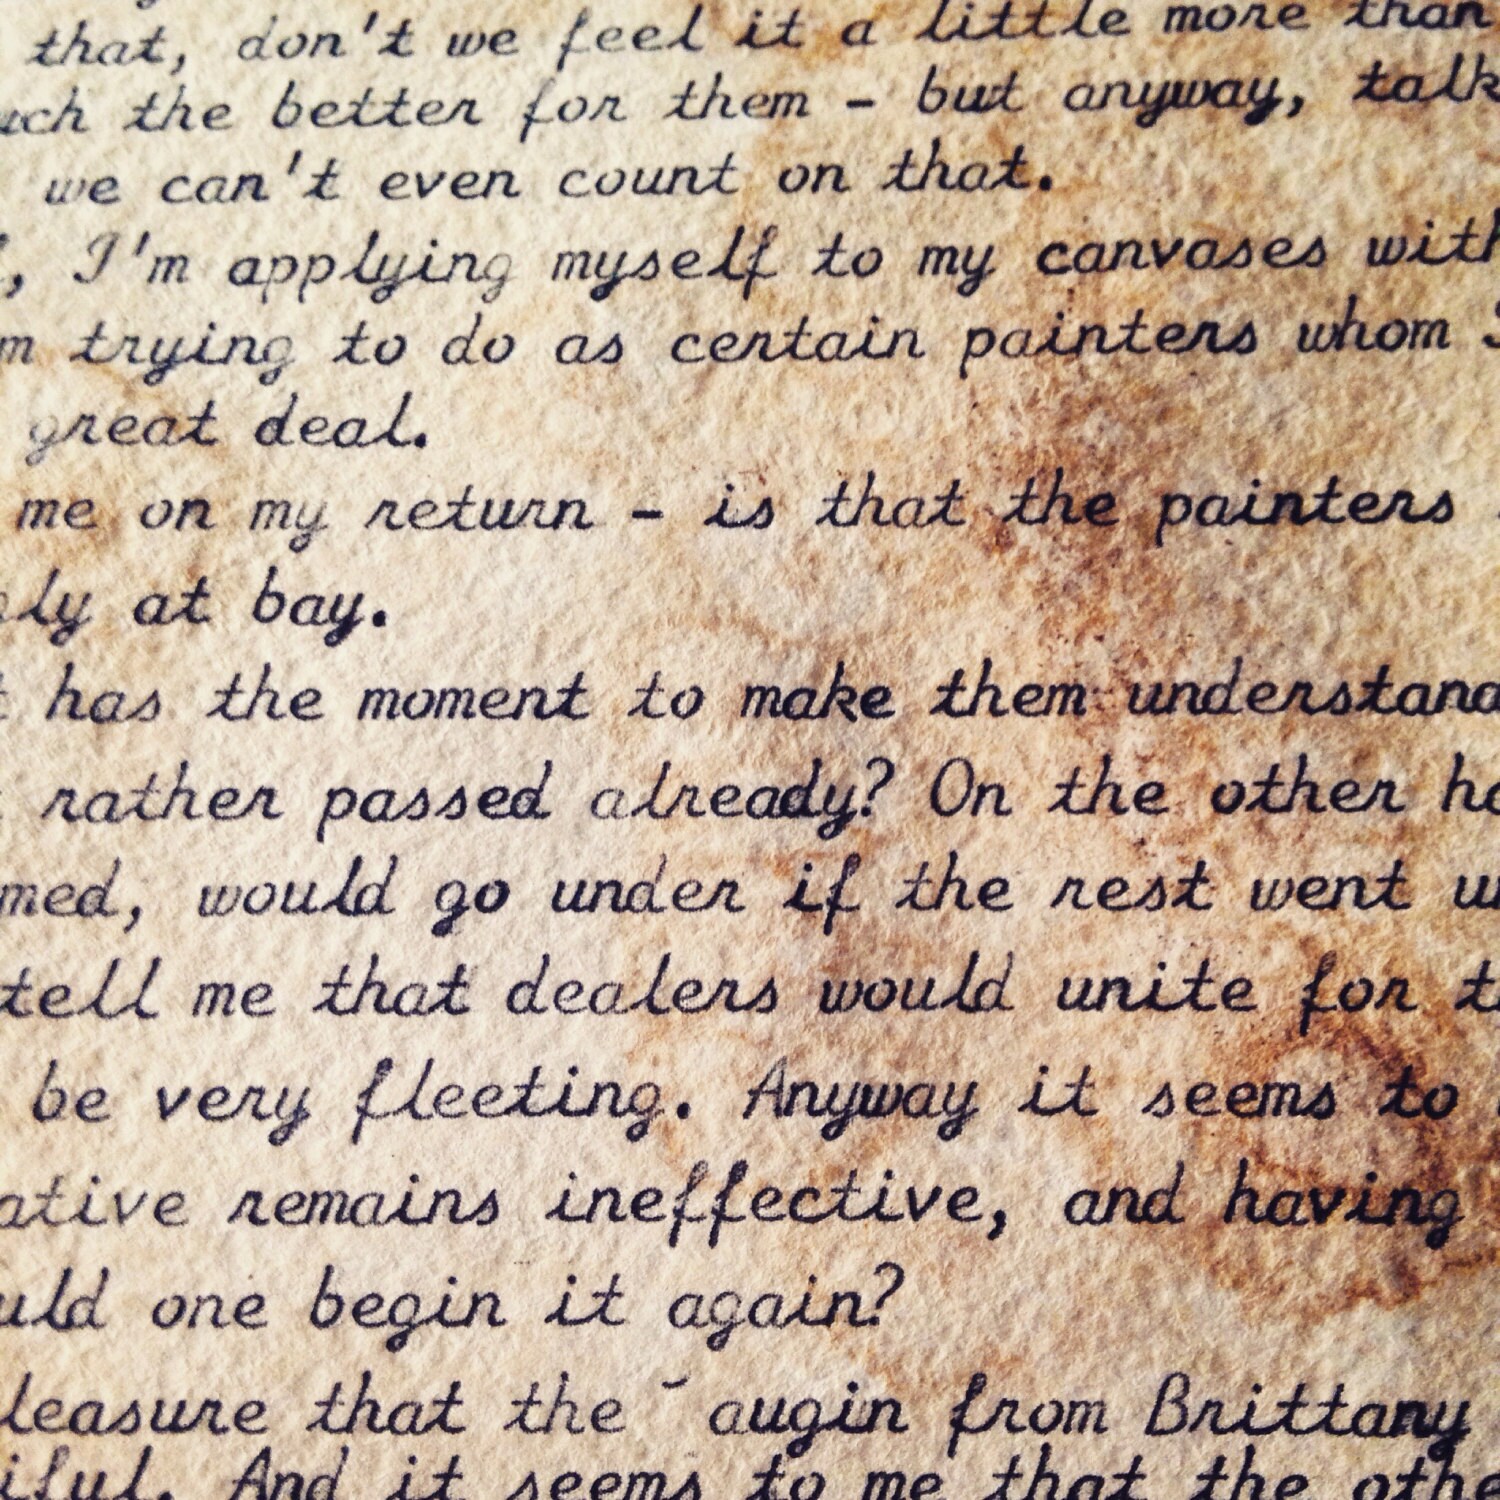 that, don't we feel it a little more than
the better for them - but anyway, talk
we can't even count on that.
, I'm applying myself to my canvases with
trying to do as certain painters whom I
great deal.
me on my return - is that the painters
ly at bay.
has the moment to make them understand
rather passed already? On the other ha
med, would go under if the rest went un
tell me that dealers would unite for t
be very fleeting. Anyway it seems to
ative remains ineffective, and having
uld one begin it again?
leasure that the augin from Brittany
iful. And it seems to me that the othe